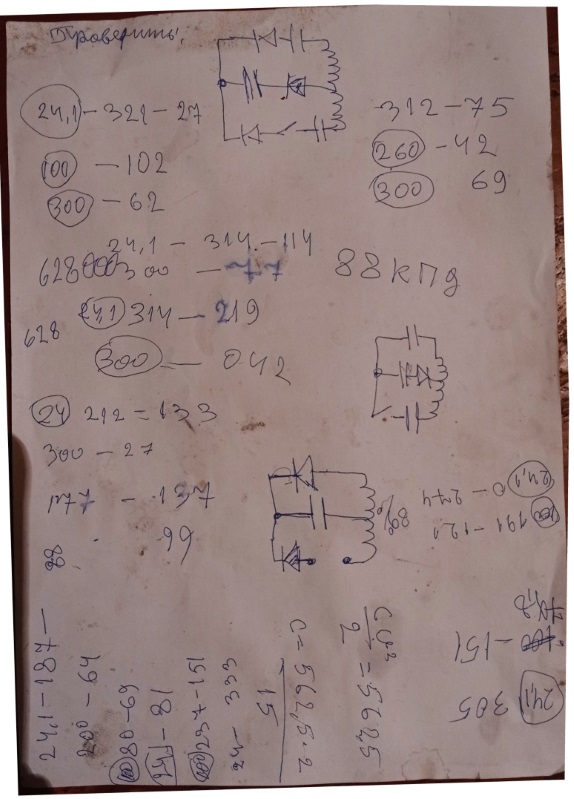 Проверить.
24,1 - 321 - 27
100 - 102
300 - 62
312 - 75
260 - 42
300 69
24,1 - 314 - 114
628000 300 - 77
88 кПд
24,1 314 - 219
628
300 - 042
24 212 = 133
300 - 27
177 - 137
88 99
88%
24,1 0 - 274
191 - 121
- 151
24,1 305
24,1 - 187 -
200 - 64
100 80 - 69
241 - 81
237 - 151
24 - 333
15
c = 562,5 · 2
cu²
2
= 562,5